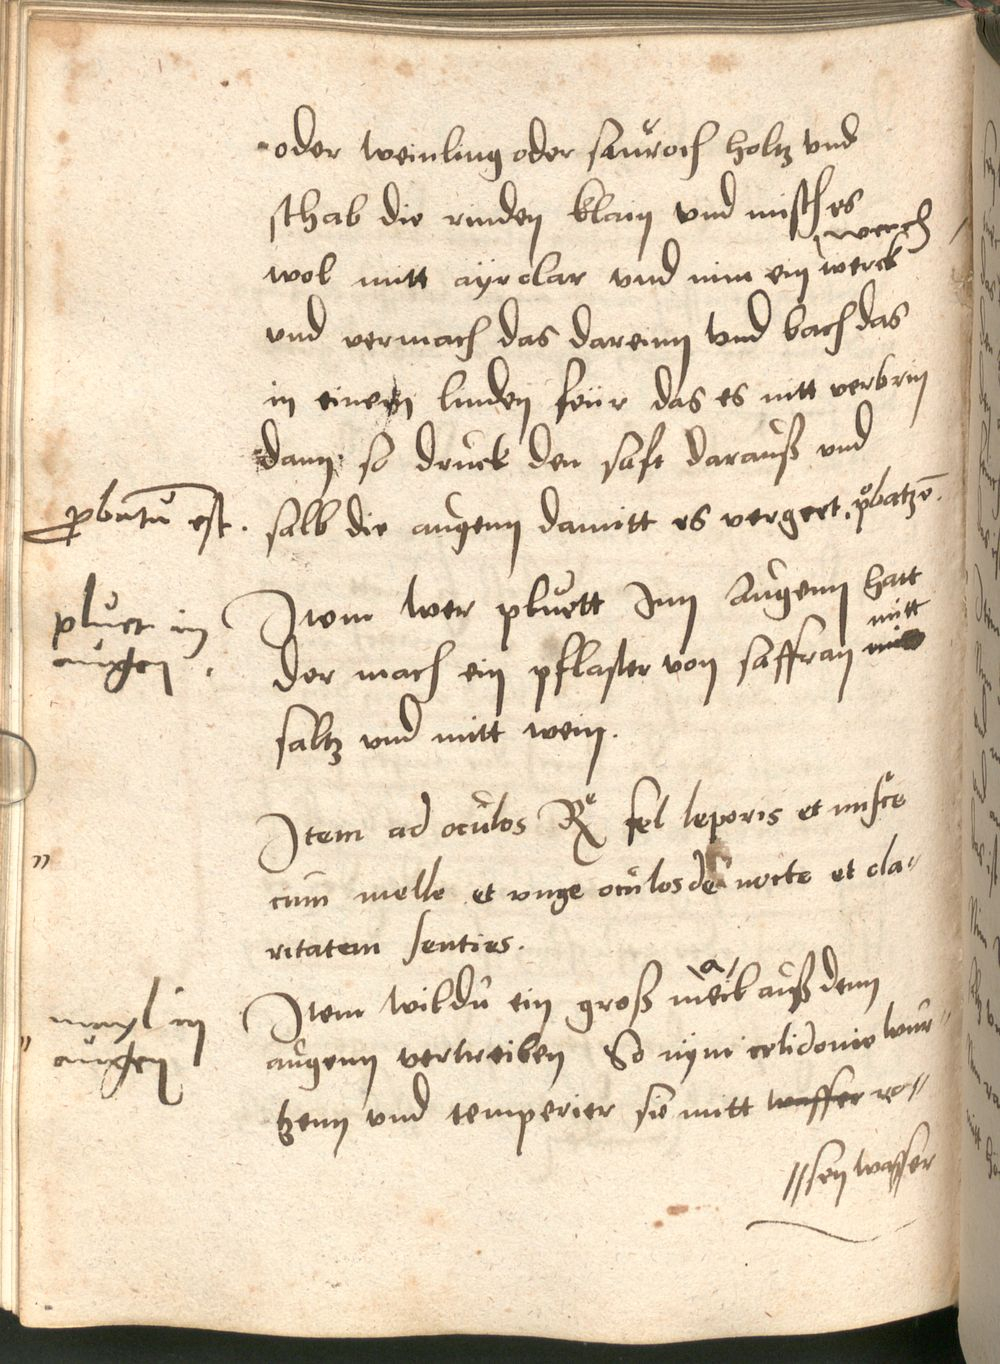 oder weinling oder saůroch holtz vnd
schab die rinden klain vnd misch es
werch
wol mitt ayrclar vnd nim ein werck
vnd vermach das dareinn vnd bach das
in einem linden feür das es nitt verbrin
dann so druck den saft darauß vnd
probatū est.
salb die augenn damitt es vergeet. probatzē.
pluet in
augen.
Item wer pluett Inn Augenn hatt
mitt
der mach ein pflaster von saffran mitt
saltz vnd mitt wein.
Item ad oculos Re fel leporis et misce
cum melle et vnge oculos de nocte et cla〃
ritatem senties.
mayl in
augen
a
Item wildu ein groß meil auß denn
augenn vertreiben So nym celidonie wur〃
tzenn vnd temperier sie mitt wasser ro〃
〃sen wasser